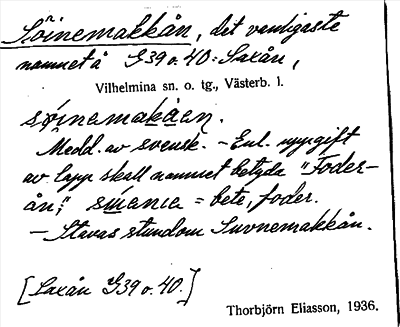 Söinemakkån, det vanligaste
namnet å G39 o. 40: Saxån,
Vilhelmina sn. o. tg., Västerb. l.
søinemakåen.
Medd. av svensk. – Enl. uppgift
av lapp skall namnet betyda "Foder-
ån;" = bete, foder.
– Stavas stundom Suvnemakkån.
[Saxån G39 o. 40.]
Thorbjörn Eliasson, 1936.